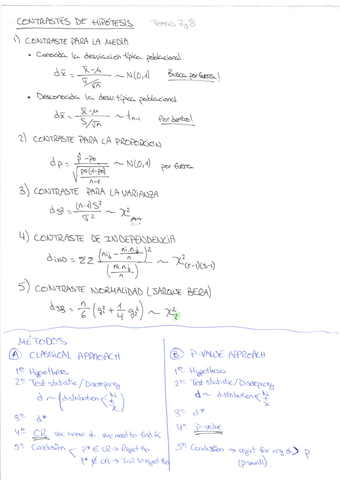 CONTRASTES DE HIPÓTESIS Temas 7 y 8
1) CONTRASTE PARA LA MEDIA
• Conocida la desviación típica poblacional
d x̄ = (x̄ - μ) / (σ/√n) ~ N(0,1) Busca por fuera!
• Desconocida la desv. típica poblacional
d x̄ = (x̄ - μ) / (S/√n) ~ t n-1 Por dentro!
2) CONTRASTE PARA LA PROPORCION
d p = (p̂ - p0) / √(p0(1-p0)/(n-1)) ~ N(0,1) por fuera
3) CONTRASTE PARA LA VARIANZA
d s² = (n-1)S² / σ² ~ χ²
4) CONTRASTE DE INDEPENDENCIA
d IND = ΣΣ (nij - ni.n.j/n)² / (ni.n.j/n) ~ χ² (r-1)(s-1)
5) CONTRASTE NORMALIDAD (JARQUE BERA)
d JB = n/6 (g₁² + 1/4 g₂²) ~ χ²₂
MÉTODOS
A CLASSICAL APPROACH
1º Hypotheses
2º Test statistic/Discrepancy
d ~ (distribution N t χ
3º d*
4º CR we know α, we need to find k
5º Conclusion d* ∈ CR → Reject Ho
d* ∉ CR → Fail to reject Ho
B P-VALUE APPROACH
1º Hypotheses
2º Test statistic/Discrepancy
d ~ distribution N t χ
3º d*
4º p-value
5º Conclusion → reject for any α > p
(p small)